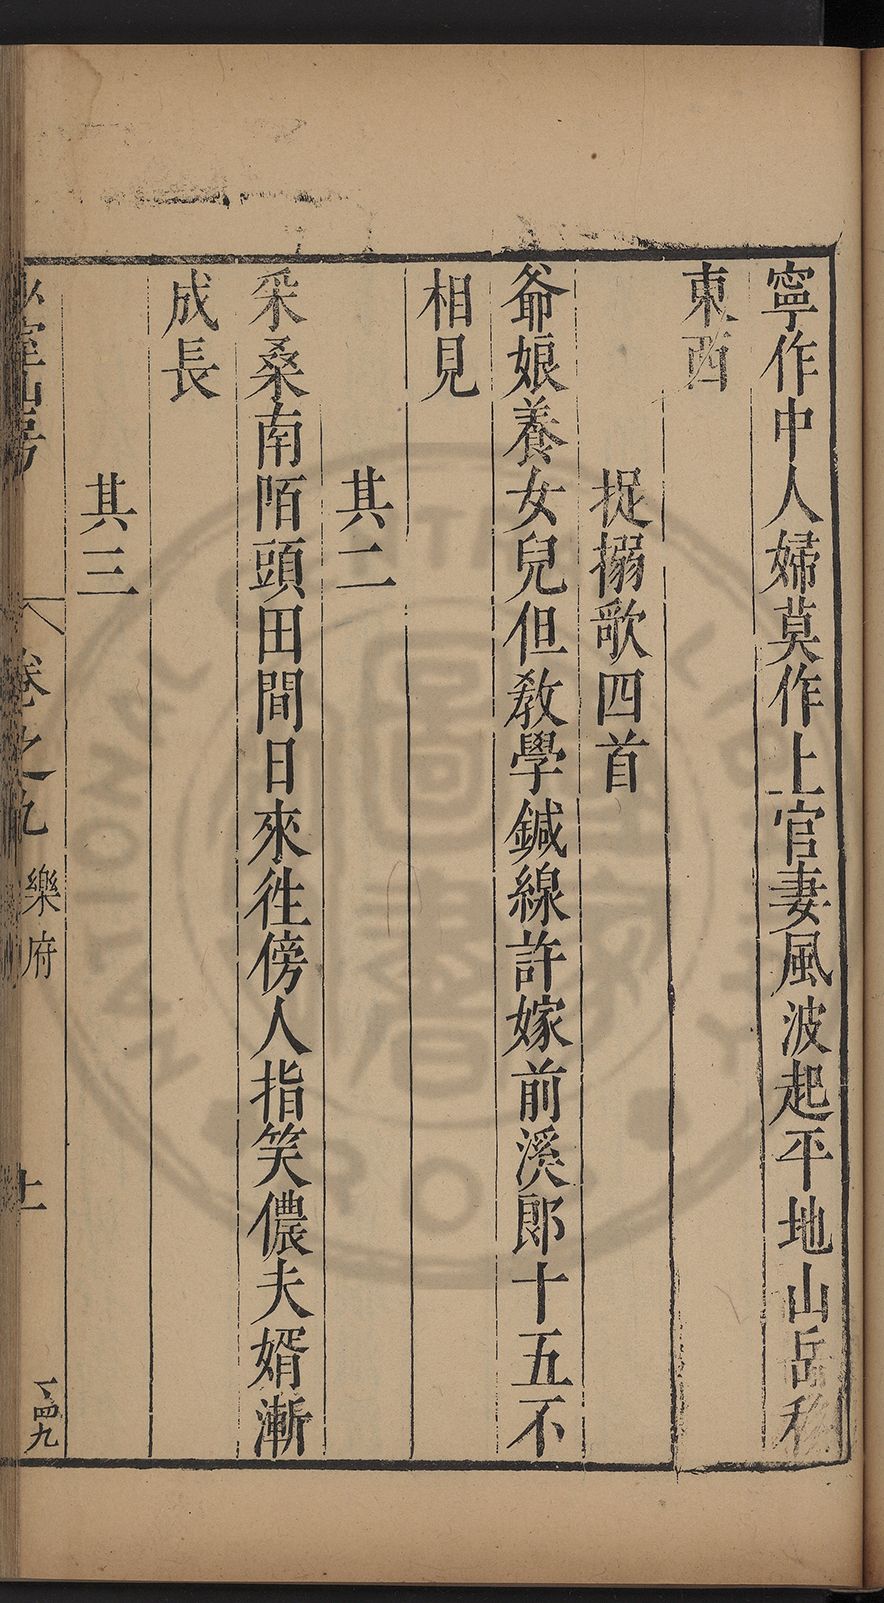 寧作中人婦莫作上官妻風波起平地山岳移
東西
捉搦歌四首
爺娘養女兒但教學鍼線許嫁前溪郎十五不
相見
其二
采桑南陌頭田間日來往傍人指笑儂夫婿漸
成長
其三
山房
卷之九 樂府
四九